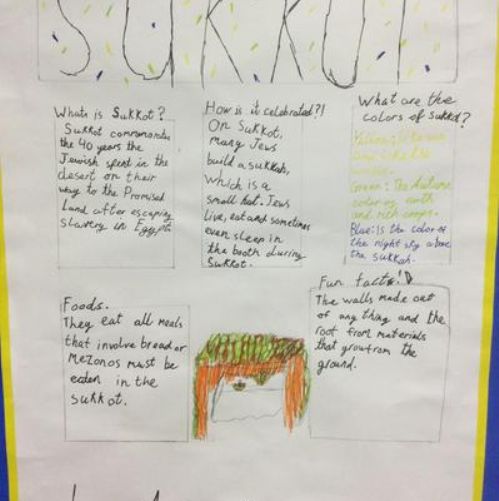 SUKKOT
Whats is Sukkot?
Sukkot commemorates
the 40 years the
Jewish spent in the
desert on their
way to the Promised
Land after escaping
slavery in Egypt.
How is it celebrated?!
On Sukkot,
many Jews
build a sukkah,
which is a
small hut. Jews
live, eat and sometimes
even sleep in
the booth during
Sukkot.
What are the
colors of sukkot?
Green: The Autumn
color of earth
and rich crops.
Blue: Is the color of
the night sky above
the sukkah.
Foods.
They eat all meals
that involve bread or
Mezonos must be
eaten in the
sukkot.
Fun facts!
The walls made out
of any thing and the
roof from materials
that grow from the
ground.